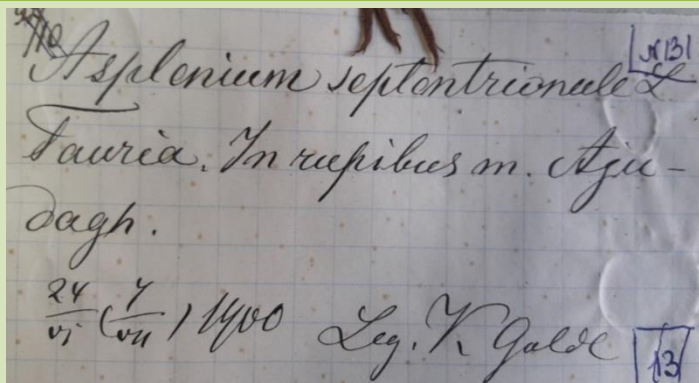 N 131
Asplenium septentrionale L
Tauria. In rupibus m. Aju-
dagh.
24/VI (7/VII) 1900 Leg. K Golde
13